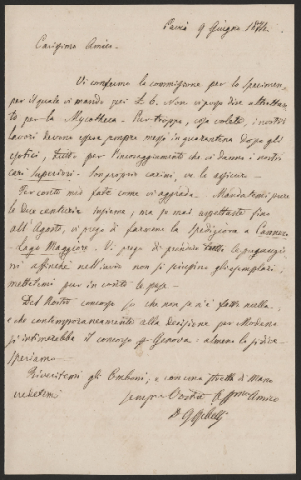 Pavia 9 Giugno 1874.
Carissimo Amico.
Vi confermo la commissione per lo Specimen,
per il quale vi mando qui L. 6. Non vi posso dire altrettanto
per la Mycotheca. Pur troppo, cosa volete, i nostri
lavori devono essere sempre messi in quarantina dopo gli
esotici, frutto per l'incoraggimento che ci danno i nostri
cari Superiori. Son proprio carini, ve lo assicuro.
Per conto mio fate come vi aggrada. Mandatemi pure
le due centurie insieme, ma se mai aspettaste fino
all'Agosto, vi prego di farmene la spedizione a Cannero
Lago Maggiore. Vi prego di
affinchè nell'invio non si gli esemplari;
mettetemi pure in conto le spese.
Del Vostro concorso so che non se n'è fatto nulla,
e che contemporaneamente alla decisione per Modena
si intimerebbe il concorso per Genova, almeno lo si dice.
Speriamo.
Riveritemi gli Erbari, e con una stretta di mano
credetemi sempre Vostro Aff.mo Amico
D. G. Gibelli